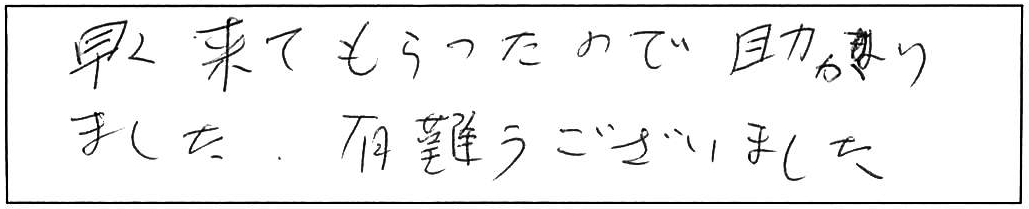 早く来てもらったので助かり
ました.有難うございました